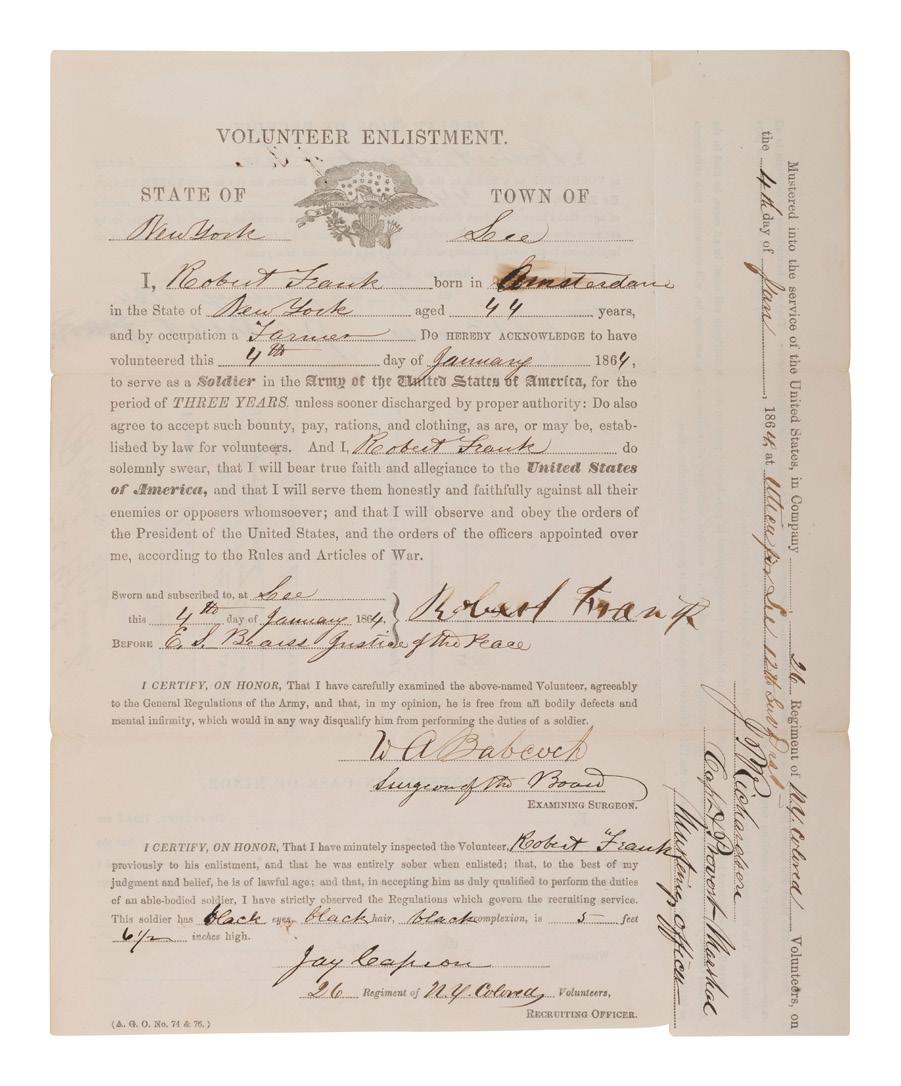 VOLUNTEER ENLISTMENT.
STATE OF TOWN OF
New York Lee
I, Robert Frank born in Amsterdam
in the State of New York aged 44 years,
and by occupation a Farmer DO HEREBY ACKNOWLEDGE to have
volunteered this 4th day of January 1864,
to serve as a Soldier in the Army of the United States of America, for the
period of THREE YEARS. unless sooner discharged by proper authority: Do also
agree to accept such bounty, pay, rations, and clothing, as are, or may be, estab-
lished by law for volunteers. And I, Robert Frank do
solemnly swear, that I will bear true faith and allegiance to the United States
of America, and that I will serve them honestly and faithfully against all their
enemies or opposers whomsoever; and that I will observe and obey the orders of
the President of the United States, and the orders of the officers appointed over
me, according to the Rules and Articles of War.
Sworn and subscribed to, at Lee
this 4th day of January 1864. Robert Frank
BEFORE E. S. Justice of the Peace
I CERTIFY, ON HONOR, That I have carefully examined the above-named Volunteer, agreeably
to the General Regulations of the Army, and that, in my opinion, he is free from all bodily defects and
mental infirmity, which would in any way disqualify him from performing the duties of a soldier.
W A Babcock
Surgeon of the Board
EXAMINING SURGEON.
I CERTIFY, ON HONOR, That I have minutely inspected the Volunteer, Robert Frank
previously to his enlistment, and that he was entirely sober when enlisted; that, to the best of my
judgment and belief, he is of lawful age; and that, in accepting him as duly qualified to perform the duties
of an able-bodied soldier, I have strictly observed the Regulations which govern the recruiting service.
This soldier has black eyes, black hair, black complexion, is 5 feet
6 1/2 inches high.
Jay Capron
26 Regiment of N.Y. Colored Volunteers,
RECRUITING OFFICER.
(A. G. O. No. 74 & 76.)
Mustered into the service of the United States, in Company 26 Regiment of N.Y. Colored Volunteers, on
the 4th day of Jan, 1864, at Utica for Lee 12th Sub Dist
J. P. Richardson
Capt & Provost Marshal
Mustering Officer